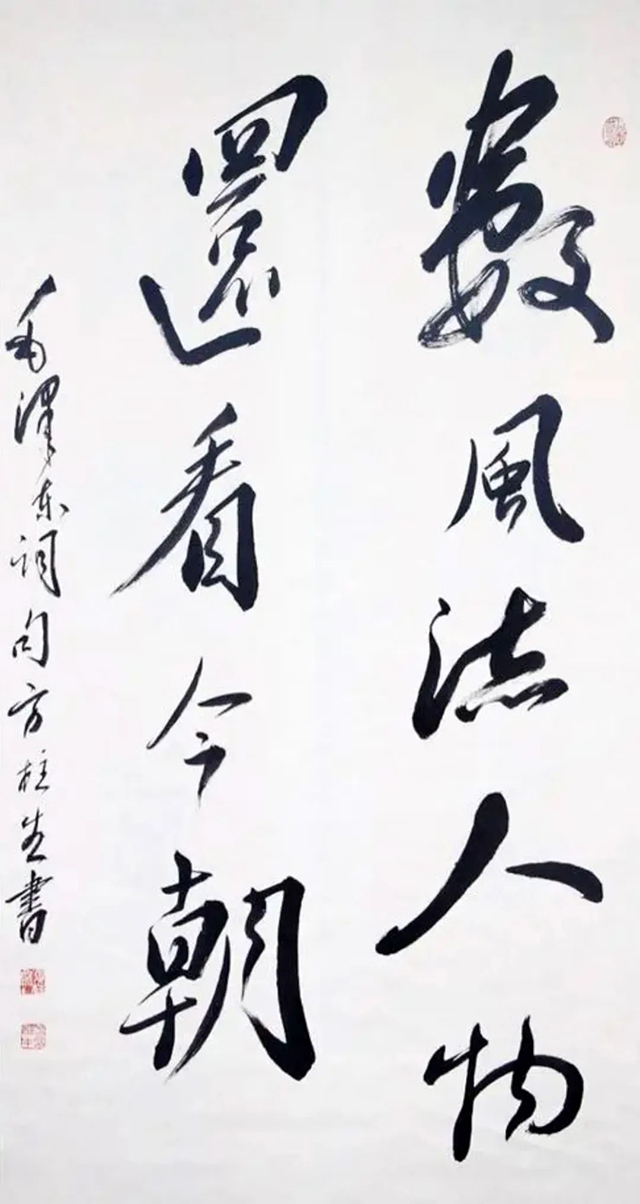 數風流人物
還看今朝
毛澤東詞句方柱生書